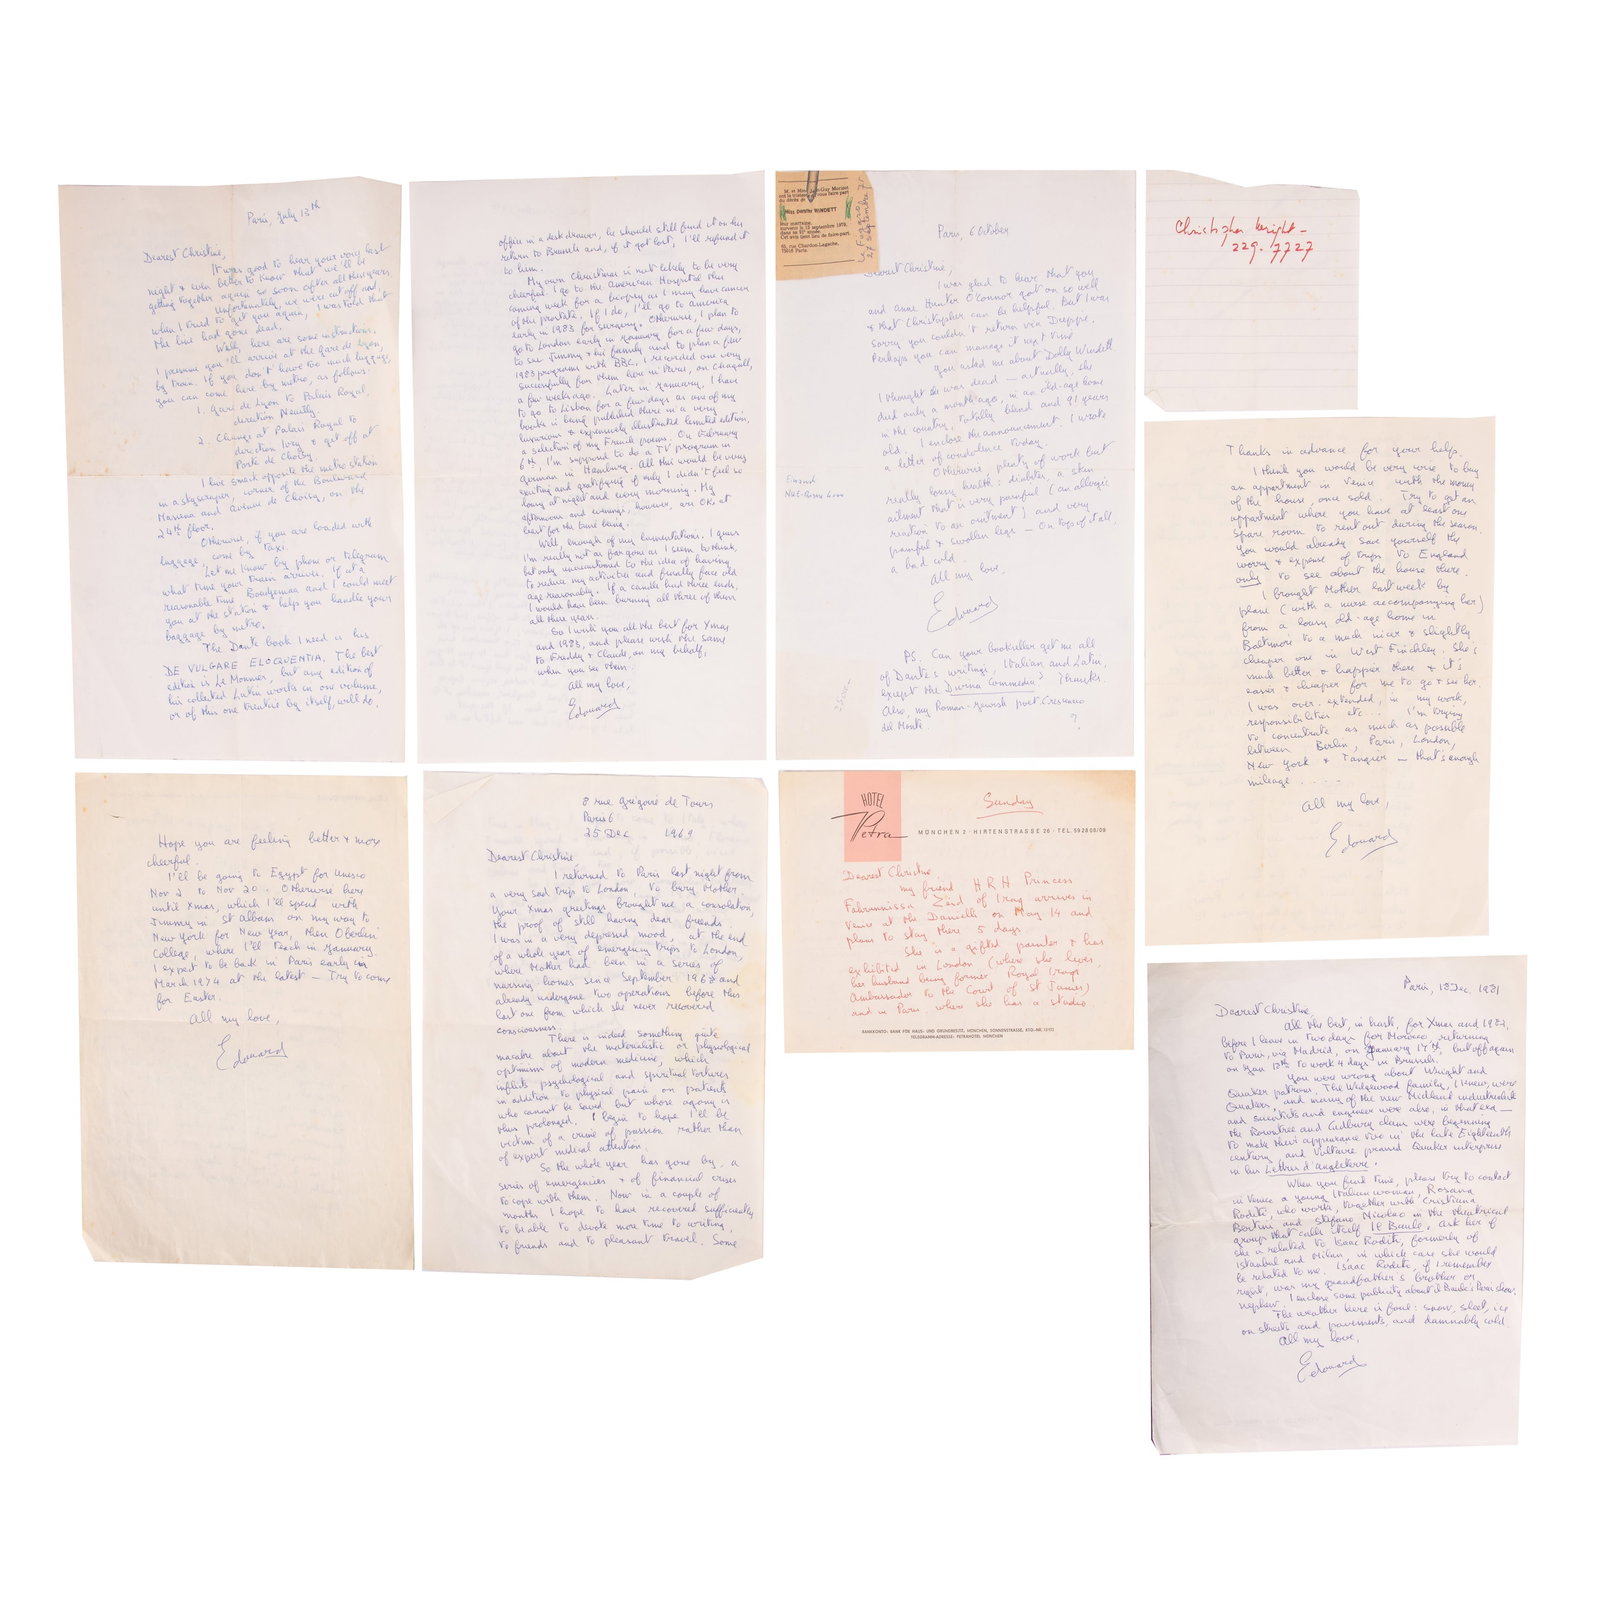 Paris, July 13th
Dearest Christine,
It was good to hear your very last
night & even better to know that we'll be
getting together again so soon after all these years
Unfortunately, we were cut off and,
when I tried to get you again, I was told that
the line had gone dead.
Well, here are some instructions.
I presume you'll arrive at the Gare de Lyon,
by train. If you don't have too much luggage,
you can come here by metro, as follows:
1. Gare de Lyon to Palais Royal,
direction Neuilly.
2. Change at Palais Royal to
direction Ivry & get off at
Porte de Choisy.
I live smack opposite the metro station
in a skyscraper, corner of the Boulevard
Massena and Avenue de Choisy, on the
24th floor.
Otherwise, if you are loaded with
luggage, come by taxi.
Let me know by phone or telegram
what time your train arrives. If at a
reasonable time Boudjemaa and I could meet
you at the station & help you handle your
baggage by metro.
The Dante book I need is his
DE VULGARE ELOQUENTIA. The best
edition is Le Monnier, but any edition of
his collected Latin works in one volume,
or of this one treatise by itself, will do.
office in a desk drawer, he should still find it on his
return to Brunch and, if it got lost, I'll refund it
to him.
My own Christmas is not likely to be very
cheerful. I go to the American Hospital this
coming week for a biopsy as I may have cancer
of the prostate. If I do, I'll go to America
early in 1983 for surgery. Otherwise, I plan to
go to London early in January for a few days,
to see Jimmy & his family and to plan a few
1983 programs with BBC. I recorded one very
successfully for them here in Paris, on Chagall,
a few weeks ago. Later in January, I have
to go to Lisbon for a few days as one of my
books is being published there in a very
luxurious & expensively illustrated limited edition,
a selection of my French poems. On February
6th, I'm supposed to do a TV program in
German in Hamburg. All this would be very
exciting and gratifying if only I didn't feel so
lousy at night and every morning. My
afternoons and evenings, however, are OK at
least for the time being.
Well, enough of my lamentations. I guess
I'm really not as far gone as I seem to think,
but only unaccustomed to the idea of having
to reduce my activities and finally face old
age reasonably. If a candle had three ends,
I would have been burning all three of them
all these years.
So I wish you all the best for Xmas
and 1983, and please wish the same
to Freddy & Claude, on my behalf,
when you see them.
All my love,
Edouard
M. et Mme Jean-Guy Morisot
ont la tristesse de vous faire part
du décès de
Miss Dorothy WINDETT
leur marraine,
survenu le 13 septembre 1979,
dans sa 91e année.
Cet avis tient lieu de faire-part.
65, rue Chardon-Lagache,
75016 Paris.
Le Figaro
27 septembre 79
Paris, 6 October
Dearest Christine,
I was glad to hear that you
and Anne Hunter O'Connor got on so well
& that Christopher can be helpful. But I was
sorry you couldn't return via Dieppe.
Perhaps you can manage it next time
You asked me about Dolly Windett
I thought she was dead — actually, she
died only a month ago, in an old-age home
in the country, totally blind and 91 years
old. I enclose the announcement. I wrote
a letter of condolence today.
Otherwise, plenty of work but
really lousy health: diabetes, a skin
ailment that is very painful (an allergic
reaction to an ointment) and very
painful & swollen legs — On top of it all,
a bad cold.
All my love,
Edouard
PS. Can your bookseller get me all
of Dante's writings, Italian and Latin,
except the Divina Commedia? Thanks.
Also, my Roman-Jewish poet Crescenzo
del Monte. ?
Christopher Wright —
229. 7727
Thanks in advance for your help.
I think you would be very wise to buy
an appartment in Venice with the money
of the house, once sold. Try to get an
appartment where you have at least one
spare room to rent out during the season.
You would already save yourself the
worry & expense of trips to England
only to see about the house there.
I brought Mother last week by
plane (with a nurse accompanying her)
from a lousy old-age home in
Baltimore to a much nicer & slightly
cheaper one in West Finchley. She's
much better & happier there & it's
easier & cheaper for me to go & see her.
I was over-extended, in my work,
responsibilities etc... I'm trying
to concentrate as much as possible
between Berlin, Paris, London,
New York & Tangier — that's enough
mileage . . . . .
All my love,
Edouard
Hope you are feeling better & more
cheerful.
I'll be going to Egypt for Unesco
Nov 2 to Nov 20. Otherwise here
until Xmas, which I'll spend with
Jimmy in St Albans on my way to
New York for New Year, then Oberlin
College, where I'll teach in January.
I expect to be back in Paris early in
March 1974 at the latest — Try to come
for Easter.
All my love,
Edouard
8 rue Grégoire de Tours
Paris 6
25 Dec 1969
Dearest Christine
I returned to Paris last night from
a very sad trip to London, to bury Mother.
Your Xmas greetings brought me a consolation,
the proof of still having dear friends.
I was in a very depressed mood, at the end
of a whole year of emergency trips to London,
where Mother had been in a series of
nursing homes since September 1968 and
already undergone two operations before this
last one from which she never recovered
consciousness.
There is indeed something quite
macabre about the materialistic or physiological
optimism of modern medicine, which
inflicts psychological and spiritual tortures
in addition to physical pain on patients
who cannot be saved but whose agony is
thus prolonged. I begin to hope I'll be
victim of a crime of passion rather than
of expert medical attention.
So the whole year has gone by, a
series of emergencies & of financial crises
to cope with them. Now in a couple of
months I hope to have recovered sufficiently
to be able to devote more time to writing,
to friends and to pleasant travel. Some
HOTEL
Petra
Sunday
MÜNCHEN 2 · HIRTENSTRASSE 26 · TEL. 59 28 08/09
Dearest Christine,
my friend HRH Princess
Fahrunnissa Zeid of Iraq arrives in
Venice at the Danielli on May 14 and
plans to stay there 5 days.
She is a gifted painter & has
exhibited in London (where she lives,
her husband being former Royal Iraqi
Ambassador to the Court of St James)
and in Paris, where she has a studio.
BANKKONTO: BANK FÜR HAUS- UND GRUNDBESITZ, MÜNCHEN, SONNENSTRASSE, KTO.-NR. 15172
TELEGRAMM-ADRESSE: PETRAHOTEL MÜNCHEN
Paris, 18 Dec. 1981
Dearest Christine,
All the best, in haste, for Xmas and 1982,
before I leave in two days for Morocco, returning
to Paris, via Madrid, on January 17th, but off again
on Jan 18th to work 4 days in Brussels.
You were wrong about Wright and
Quaker patrons. The Wedgewood family, I know, were
Quakers, and many of the new Midland industrialists
and scientists and engineers were also, in that era —
the Rowntree and Cadbury clans were beginning
to make their appearance too in the late Eighteenth
century, and Voltaire praised Quaker enterprise
in his Lettres d'Angleterre.
When you find time, please try to contact
in Venice a young Italian woman, Rosana
Rodite, who works, together with Cristiana
Bertini and Stefano Nicolao in the theatrical
group that calls itself Il Baule. Ask her if
she is related to Isaac Roditi, formerly of
Istanbul and Milan, in which case she would
be related to me. Isaac Roditi, if I remember
right, was my grandfather's brother or
nephew. I enclose some publicity about Il Baule's Paris show.
The weather here is foul: snow, sleet, ice
on streets and pavements, and damnably cold.
All my love,
Edouard